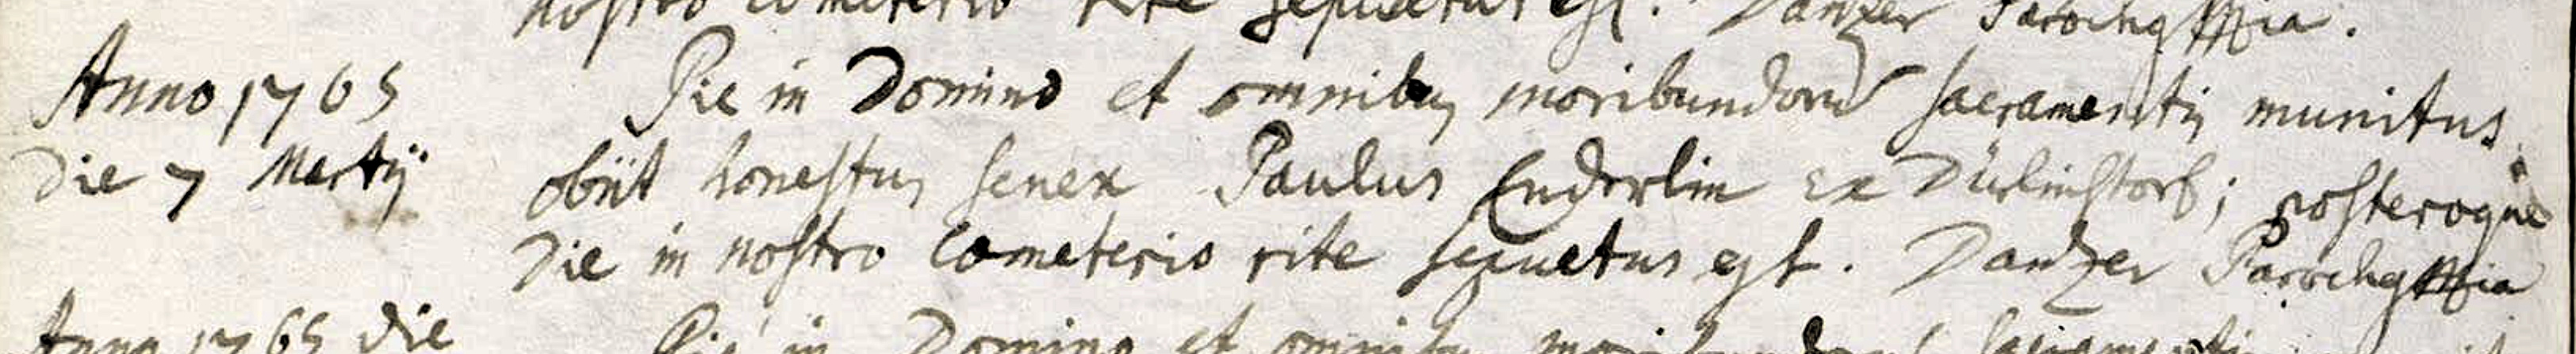 nostro cometerio rite sepuletus est. Danzer Parochus Mia.
Anno 1765 Pie in Domino et omnibus moribundorum sacramentis munitus
Die 7 Martij obiit honestus senex Paulus Enderlin ex Dürlinstorf; posteroque
Die in nostro Cometerio rite sepuetus est. Danzer Parochus Mia
Anno 1765 die Pie in Domino et omnibus moribundorum sacramentis